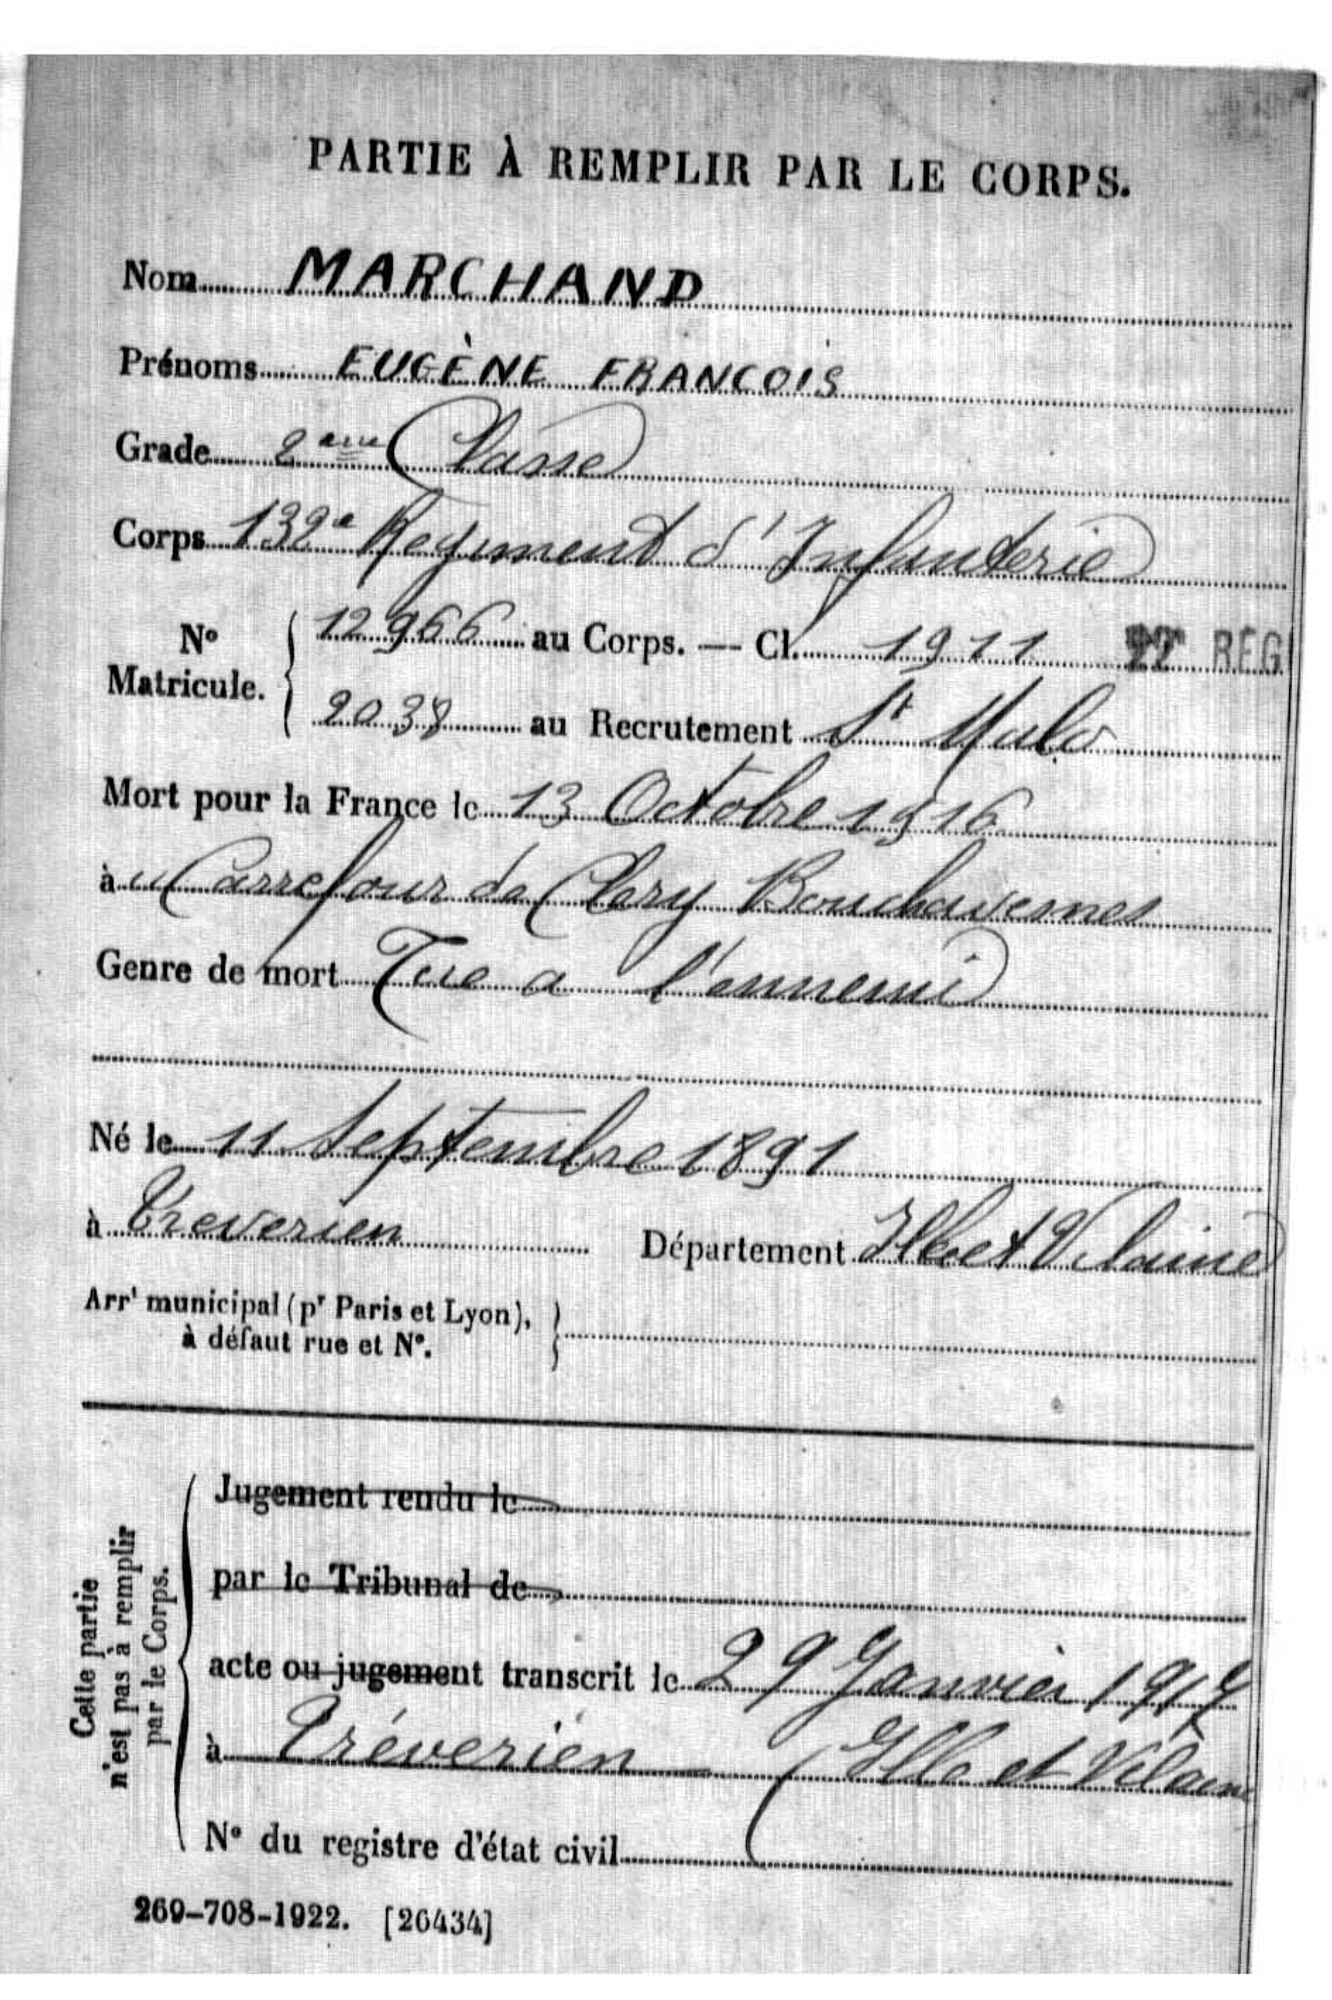 PARTIE À REMPLIR PAR LE CORPS.
Nom MARCHAND
Prénoms EUGÈNE FRANCOIS
Grade 2eme Classe
Corps 132e Regiment d'Infanterie
No Matricule. 12966 au Corps. — Cl. 1911 RÉG
2038 au Recrutement St Malo
Mort pour la France le 13 Octobre 1916
à Carrefour de Clery Bouchavesnes
Genre de mort Tue a l'ennemi
Né le 11 Septembre 1891
à Treverien Département Ille et Vilaine
Arrt municipal (pr Paris et Lyon),
à défaut rue et No.
Cette partie
n'est pas à remplir
par le Corps.
Jugement rendu le
par le Tribunal de
acte ou jugement transcrit le 29 Janvier 1917
à Tréverien (Ille et Vilaine
No du registre d'état civil
269-708-1922. [26434]